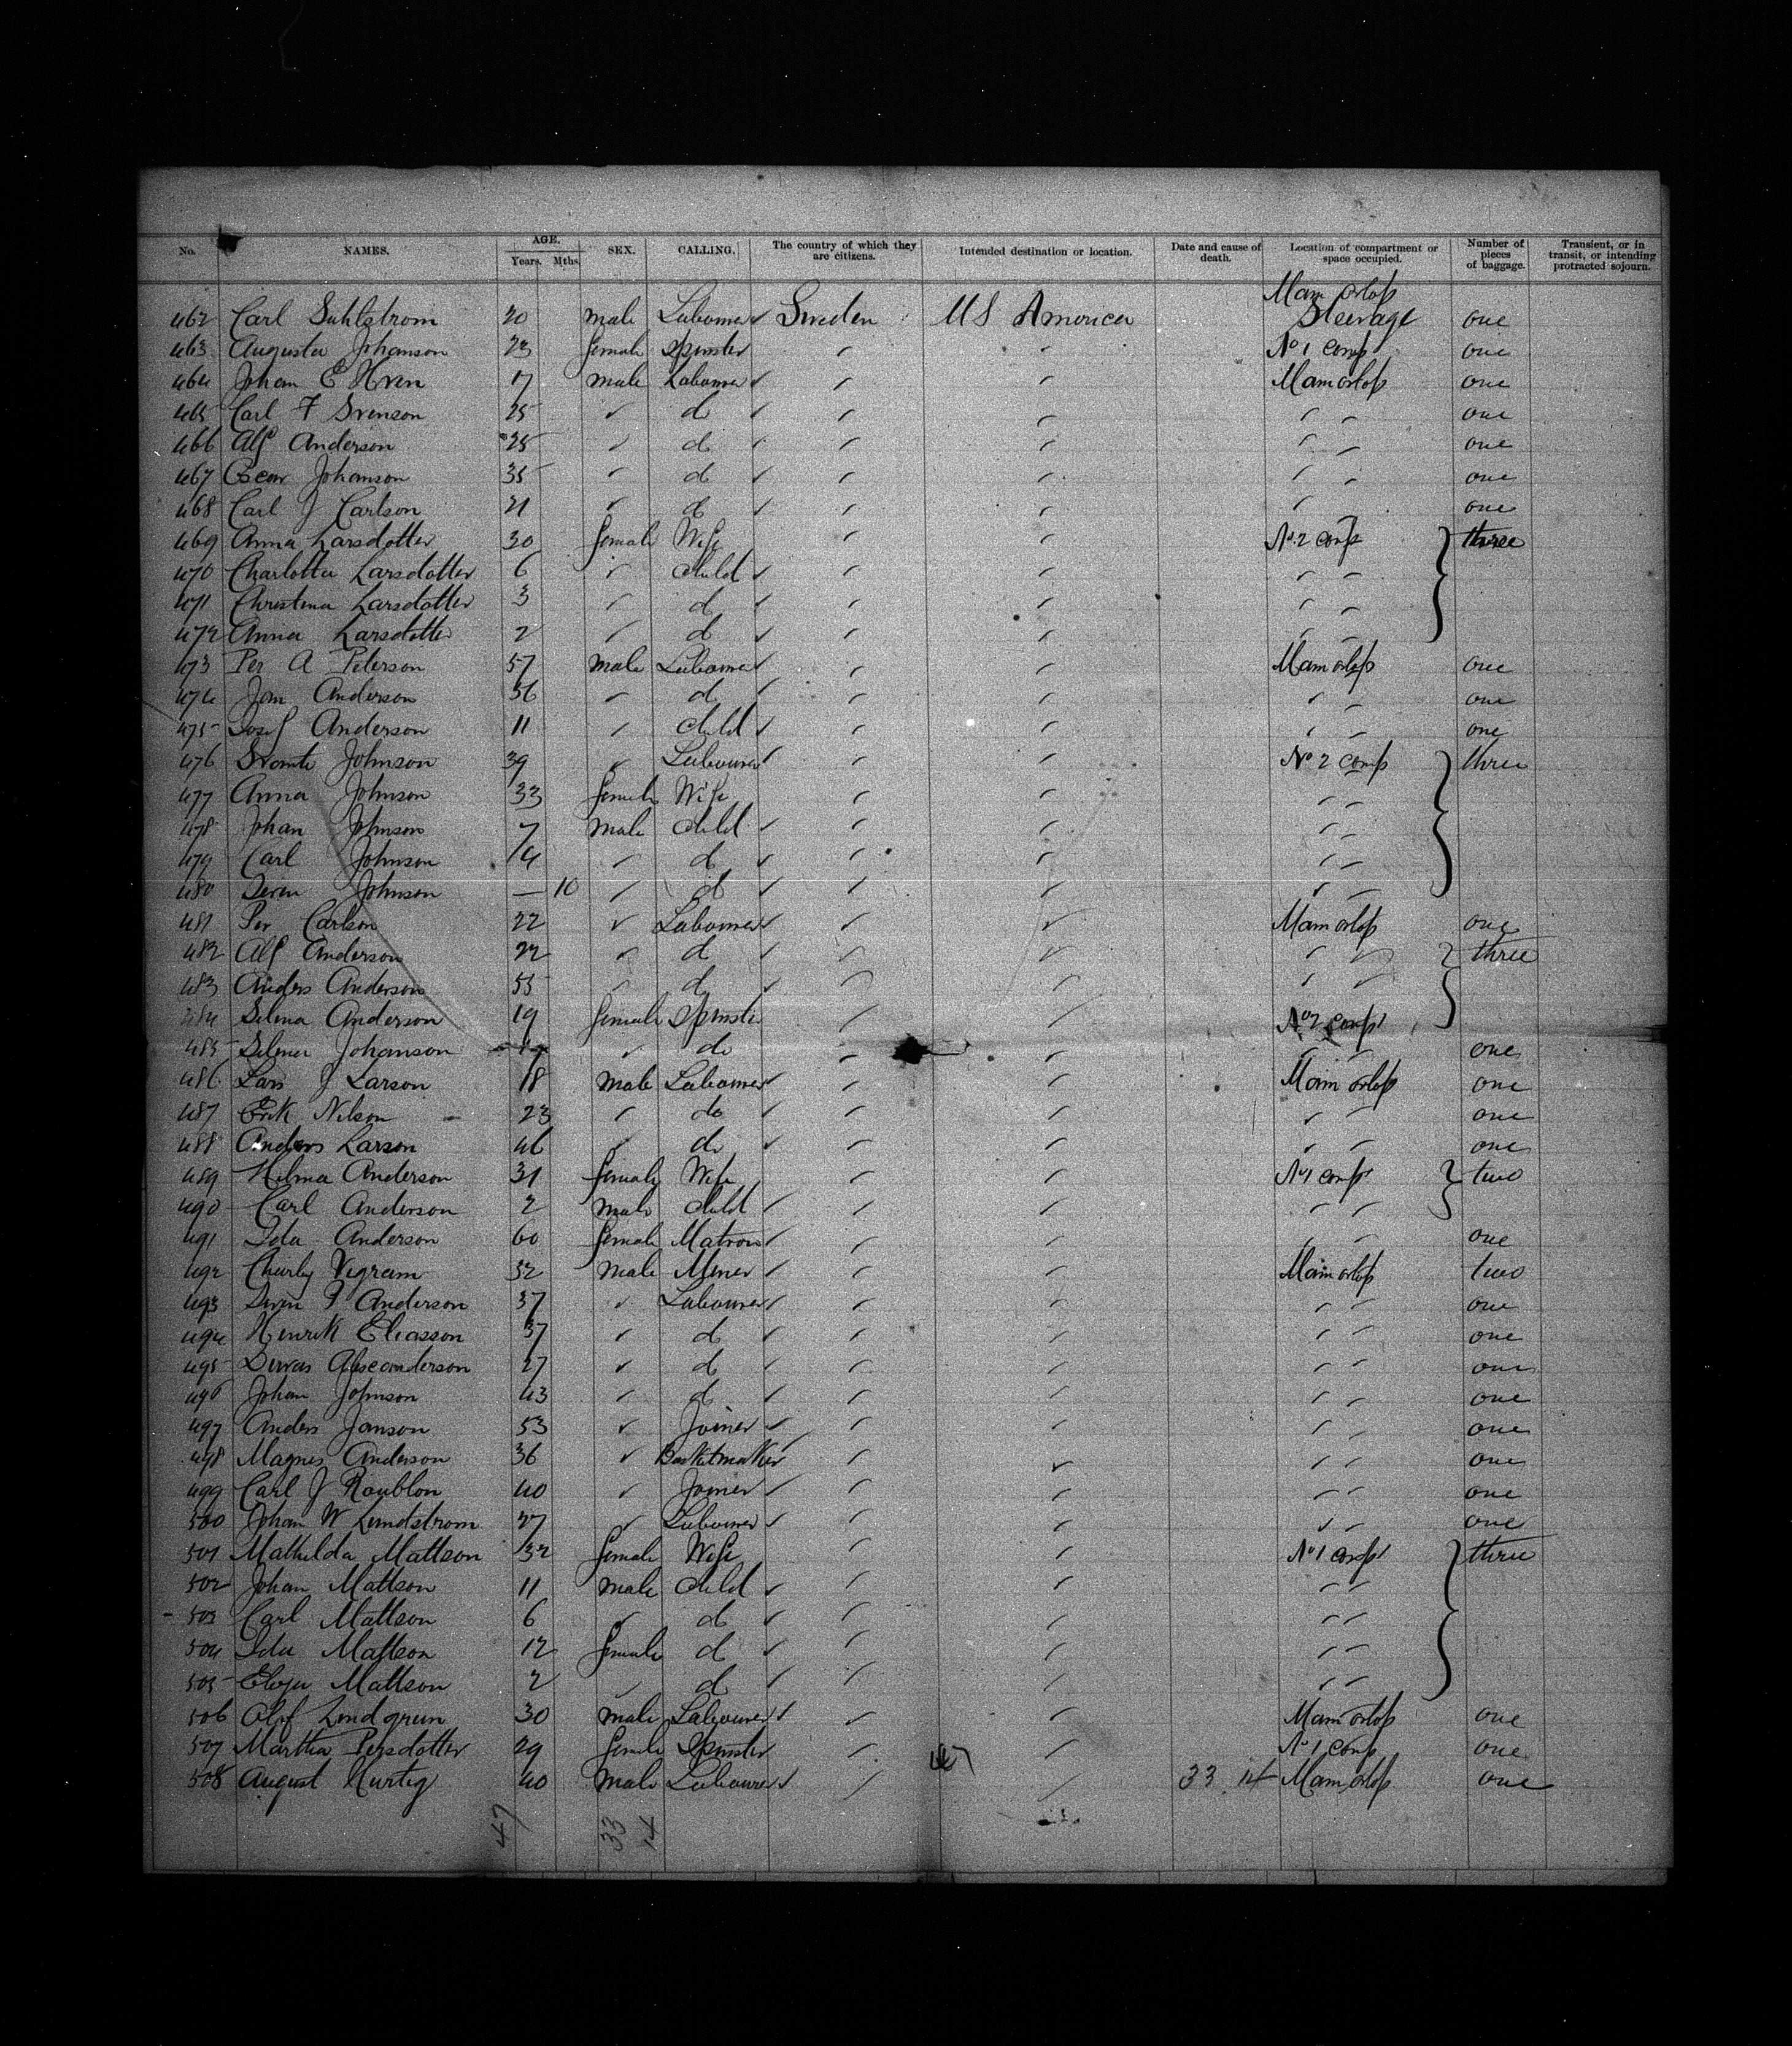 No. NAMES. AGE. Years. Mths. SEX. CALLING. The country of which they are citizens. Intended destination or location. Date and cause of death. Location of compartment or space occupied. Number of pieces of baggage. Transient, or in transit, or intending protracted sojourn.
Main orlop
462 Carl Sahlstrom 20 male Labourer Sweden US America Steerage one
463 Augusta Johanson 23 female Spinster No 1 comp one
464 Johan E Hven 17 male Labourer Main orlop one
465 Carl F Svenson 25 do one
466 Alf Anderson 25 do one
467 Oscar Johanson 35 do one
468 Carl J Carlson 21 do one
469 Anna Larsdotter 30 female Wife No. 2 comp three
470 Charlotta Larsdotter 6 child
471 Christina Larsdotter 3 do
472 Anna Larsdotter 2 do
473 Per A Peterson 57 male Labourer Main orlop one
474 Jon Anderson 36 do one
475 Josef Anderson 11 child one
476 Johnson 39 Labourer No 2 comp three
477 Anna Johnson 33 female Wife
478 Johan Johnson 7 male child
479 Carl Johnson 4 do
480 Johnson — 10 do
481 Per Carlson 22 Labourer Main orlop one
482 Alf Anderson 22 do three
483 Anders Anderson 55 do
484 Selma Anderson 19 female Spinster No 2 comp
485 Selma Johanson do one
486 Lars J Larson 18 male Labourer Main orlop one
487 Erik Nilson 23 do one
488 Anders Larson 46 do one
489 Hilma Anderson 31 female Wife No 1 comp two
490 Carl Anderson 2 male child
491 Ida Anderson 60 female Matron one
492 Charley Vegram 32 male Miner Main orlop two
493 Sven F Anderson 37 Labourer one
494 Henrik Eliasson 37 do one
495 27 do one
496 Johan Johnson 43 do one
497 Anders Janson 53 Joiner one
498 Magnus Anderson 36 Basketmaker one
499 Carl J Roublon 40 Joiner one
500 Johan W Lundstrom 27 Labourer one
501 Mathilda Mattson 32 female Wife No 1 comp three
502 Johan Mattson 11 male child
503 Carl Mattson 6 do
504 Ida Mattson 12 female do
505 Mattson 2 do
506 Olof Lindgrun 30 male Labourer Main orlop one
507 Martha Persdotter 29 female Spinster No 1 comp one
508 August Hurtig 40 male Labourer 47 33 14 Main orlop one
47 33 14